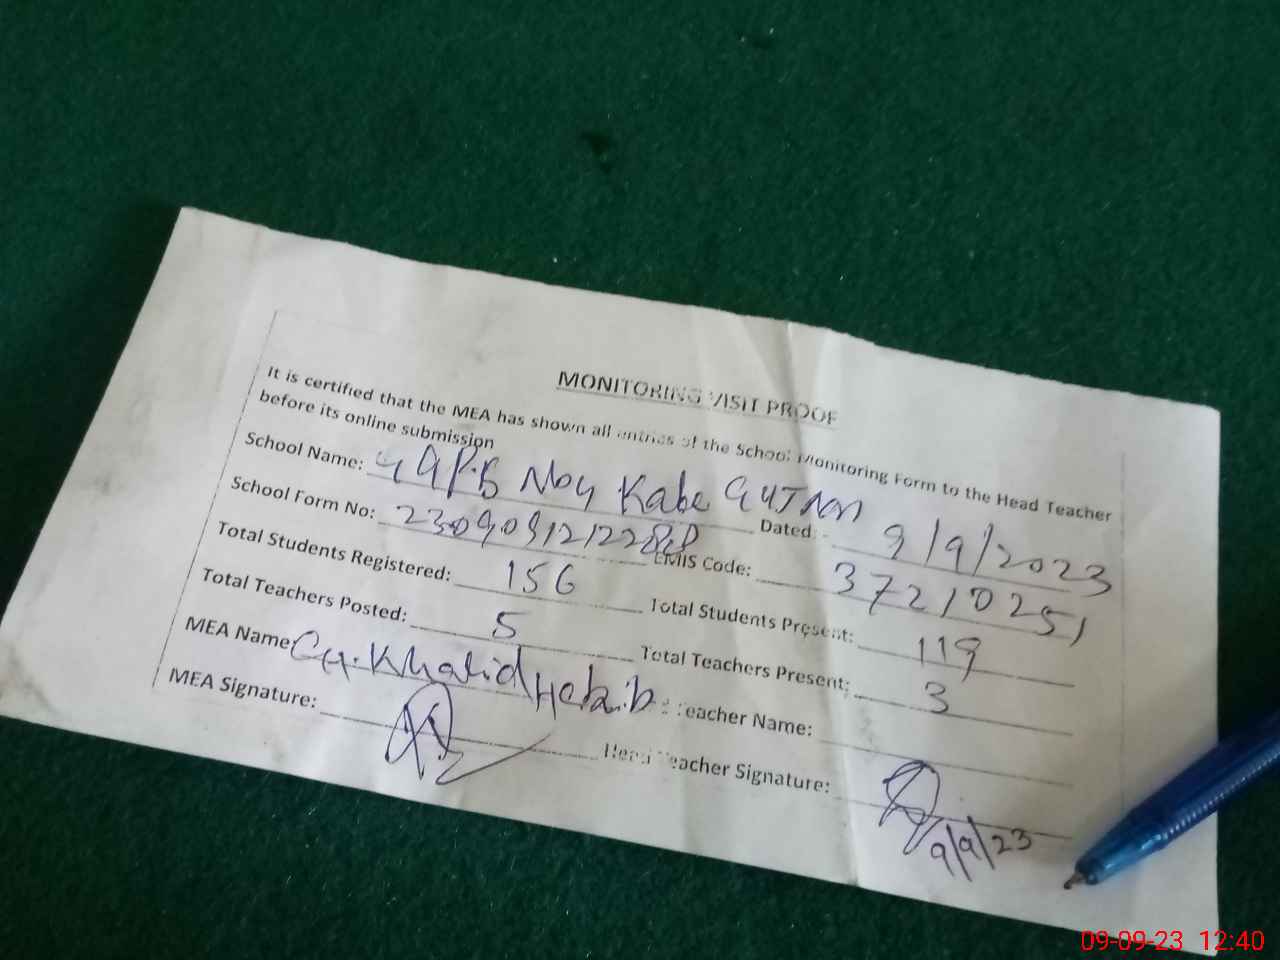 MONITORING VISIT PROOF
It is certified that the MEA has shown all entries of the School Monitoring Form to the Head Teacher
before its online submission
School Name: Kabe Dated:- 9/9/2023
School Form No: EMIS Code: 37210251
Total Students Registered: 156 Total Students Present: 119
Total Teachers Posted: 5 Total Teachers Present: 3
MEA Name: Ch. Khalid Teacher Name:
MEA Signature: Head Teacher Signature:
9/9/23
09-09-23 12:40